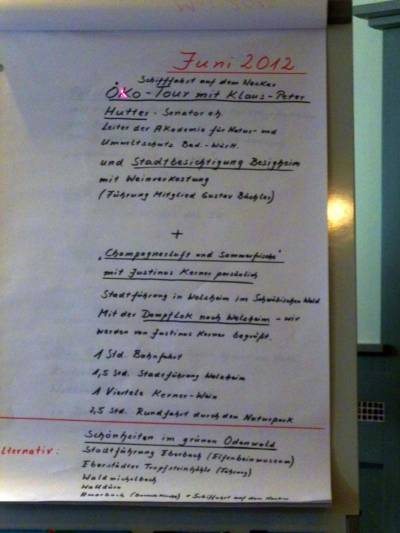 Juni 2012
Schifffahrt auf dem Neckar
Öko-Tour mit Klaus-Peter
Hutter - Senator eh.
Leiter der Akademie für Natur- und
Umweltschutz Bad.-Württ.
und Stadtbesichtigung Besigheim
mit Weinverkostung
(Führung Mitglied Gustav Büchler)
+
„Champagnerluft und Sommerfrische"
mit Justinus Kerner persönlich
Stadtführung in Welzheim im Schwäbischen Wald
Mit der Dampflok nach Welzheim - wir
werden von Justinus Kerner begrüßt.
1 Std. Bahnfahrt
1,5 Std. Stadtführung Welzheim
1 Viertele Kerner-Wein
2,5 Std. Rundfahrt durch den Naturpark
Schönheiten im grünen Odenwald
lternativ: Stadtführung Eberbach (Elfenbeinmuseum)
Eberstädter Tropfsteinhöhle (Führung)
Waldmichelbach
Walldürn
Amorbach + Schifffahrt auf dem Neckar